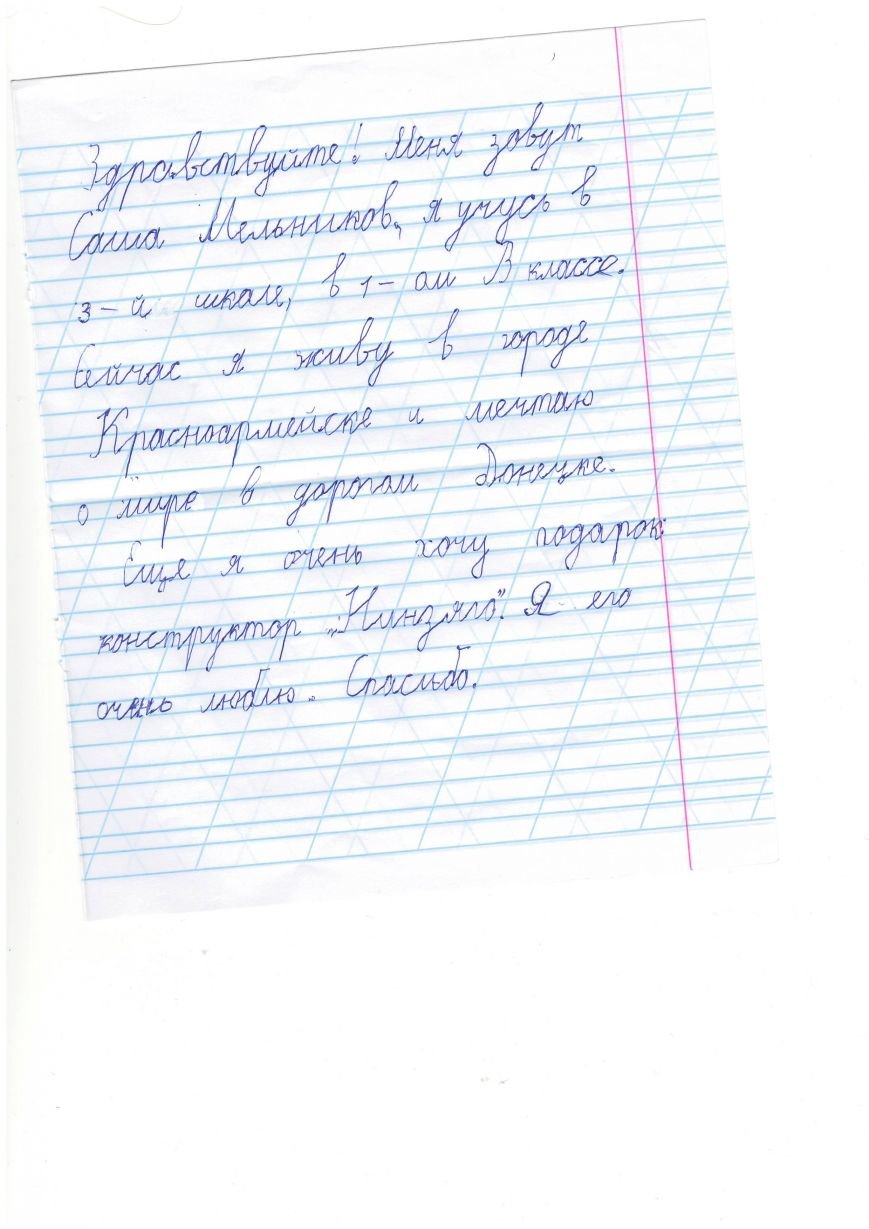 Здравствуйте! Меня зовут
Саша Мельников, я учусь в
3-й школе, в 1-ом В классе.
Сейчас я живу в городе
Красноармейске и мечтаю
о мире в дорогом Донецке.
Еще я очень хочу подарок:
конструктор „Ниндзяго". Я его
очень люблю. Спасибо.